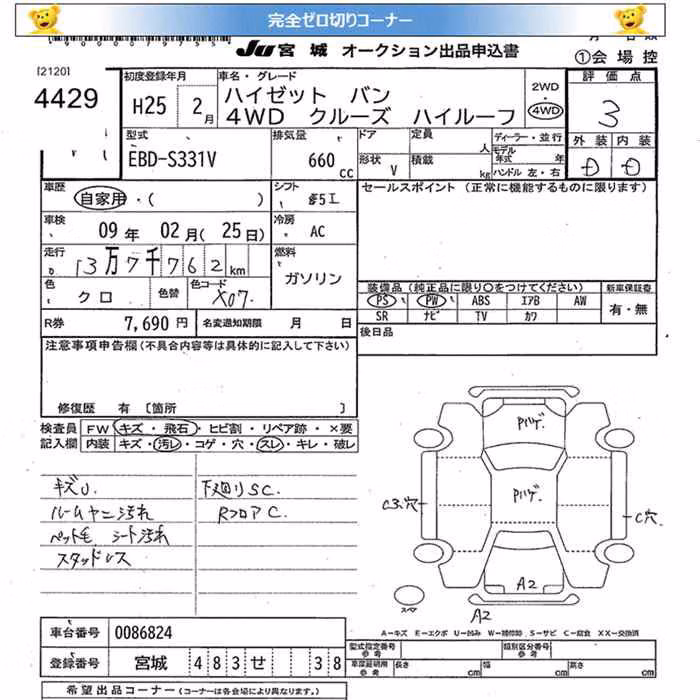 完全ゼロ切りコーナー
JU宮城 オークション出品申込書
月 日
①会場控
[2120]
4429
初度登録年月
H25 2月
車名・グレード
ハイゼット バン
4WD クルーズ ハイルーフ
2WD
・
4WD
評価点
3
外装 内装
D D
型式
EBD-S331V
排気量
660 CC
ドア
形状 V
定員 人
積載 kg
ディーラー・並行
モデル年式 年
ハンドル 左・右
車歴
自家用・( )
シフト
車検
09年 02月(25日)
冷房
AC
走行
13万7千762km
燃料
ガソリン
色
クロ
色替
色コード
X07
R券 7,690円
名変通知期限 月 日
セールスポイント (正常に機能するものに限ります)
装備品(純正品に限り○をつけてください)
PS PW ABS エアB AW
SR ナビ TV カワ
新車保証書
有・無
後日品
注意事項申告欄(不具合内容等は具体的に記入して下さい)
修復歴 有 [箇所 ]
検査員記入欄
FW キズ・飛石・ヒビ割・リペア跡・×要
内装 キズ・汚レ・コゲ・穴・スレ・キレ・破レ
キズU.
ルームヤニ汚れ
ペット毛、シート汚れ
スタッドレス
下廻りSC.
RフロアC.
Pハゲ.
Pハゲ.
C3.穴
C穴
A2
A2
スペア
A-キズ E-エクボ U-凹み W-補修跡 S-サビ C-腐食 XX-交換済
車台番号 0086824
登録番号 宮城 483せ 38
型式指定番号 参考
類別区分番号 参考
車庫証明用 参考
長さ cm 幅 cm 高さ cm
希望出品コーナー (コーナーは各会場により異なります。)